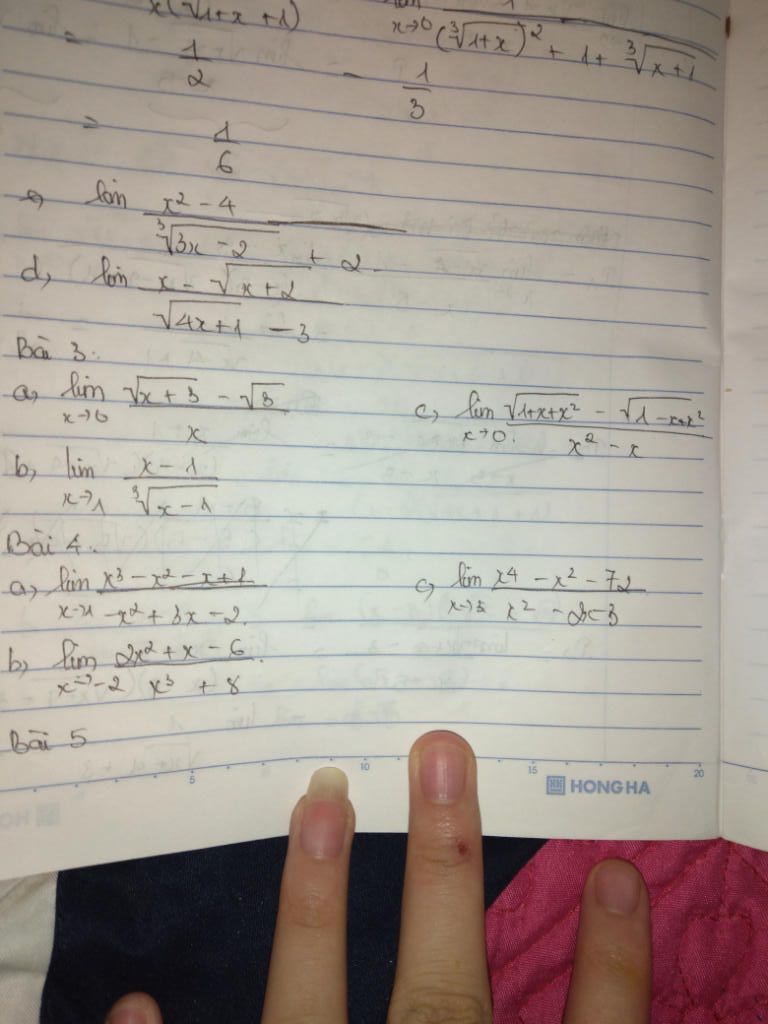 x(√1+x + 1)
lim x→0 1/((∛1+x)² + 1 + ∛x+1)
= 1/2 - 1/3
= 1/6
lim (x² - 4)/(∛3x - 2 + 2)
d, lim (x - √x + 2)/(√4x+1 - 3)
Bài 3:
a, lim x→0 (√x+3 - √3)/x
c, lim x→0 (√1+x+x² - √1-x+x²)/(x² - x)
b, lim x→1 (x - 1)/(∛x - 1)
Bài 4.
a, lim (x³ - x² - x + 1)/(-x² + 3x - 2)
c, lim x→3 (x⁴ - x² - 72)/(x² - 2x - 3)
b, lim x→-2 (2x² + x - 6)/(x³ + 8)
Bài 5
5 10 15 20
HH HONG HA